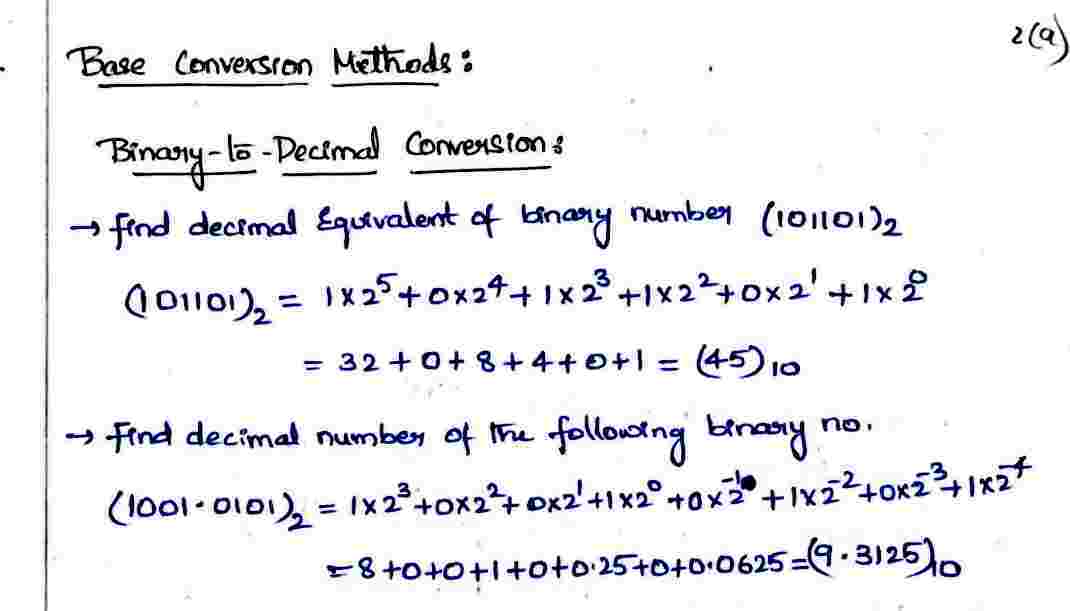 2(a)
Base Conversion Methods:
Binary-to-Decimal Conversion:
→ find decimal Equivalent of binary number (101101)₂
(101101)₂ = 1×2⁵+0×2⁴+1×2³+1×2²+0×2¹+1×2⁰
= 32+0+8+4+0+1 = (45)₁₀
→ Find decimal number of the following binary no.
(1001.0101)₂ = 1×2³+0×2²+0×2¹+1×2⁰+0×2⁻¹+1×2⁻²+0×2⁻³+1×2⁻⁴
=8+0+0+1+0+0.25+0+0.0625=(9.3125)₁₀